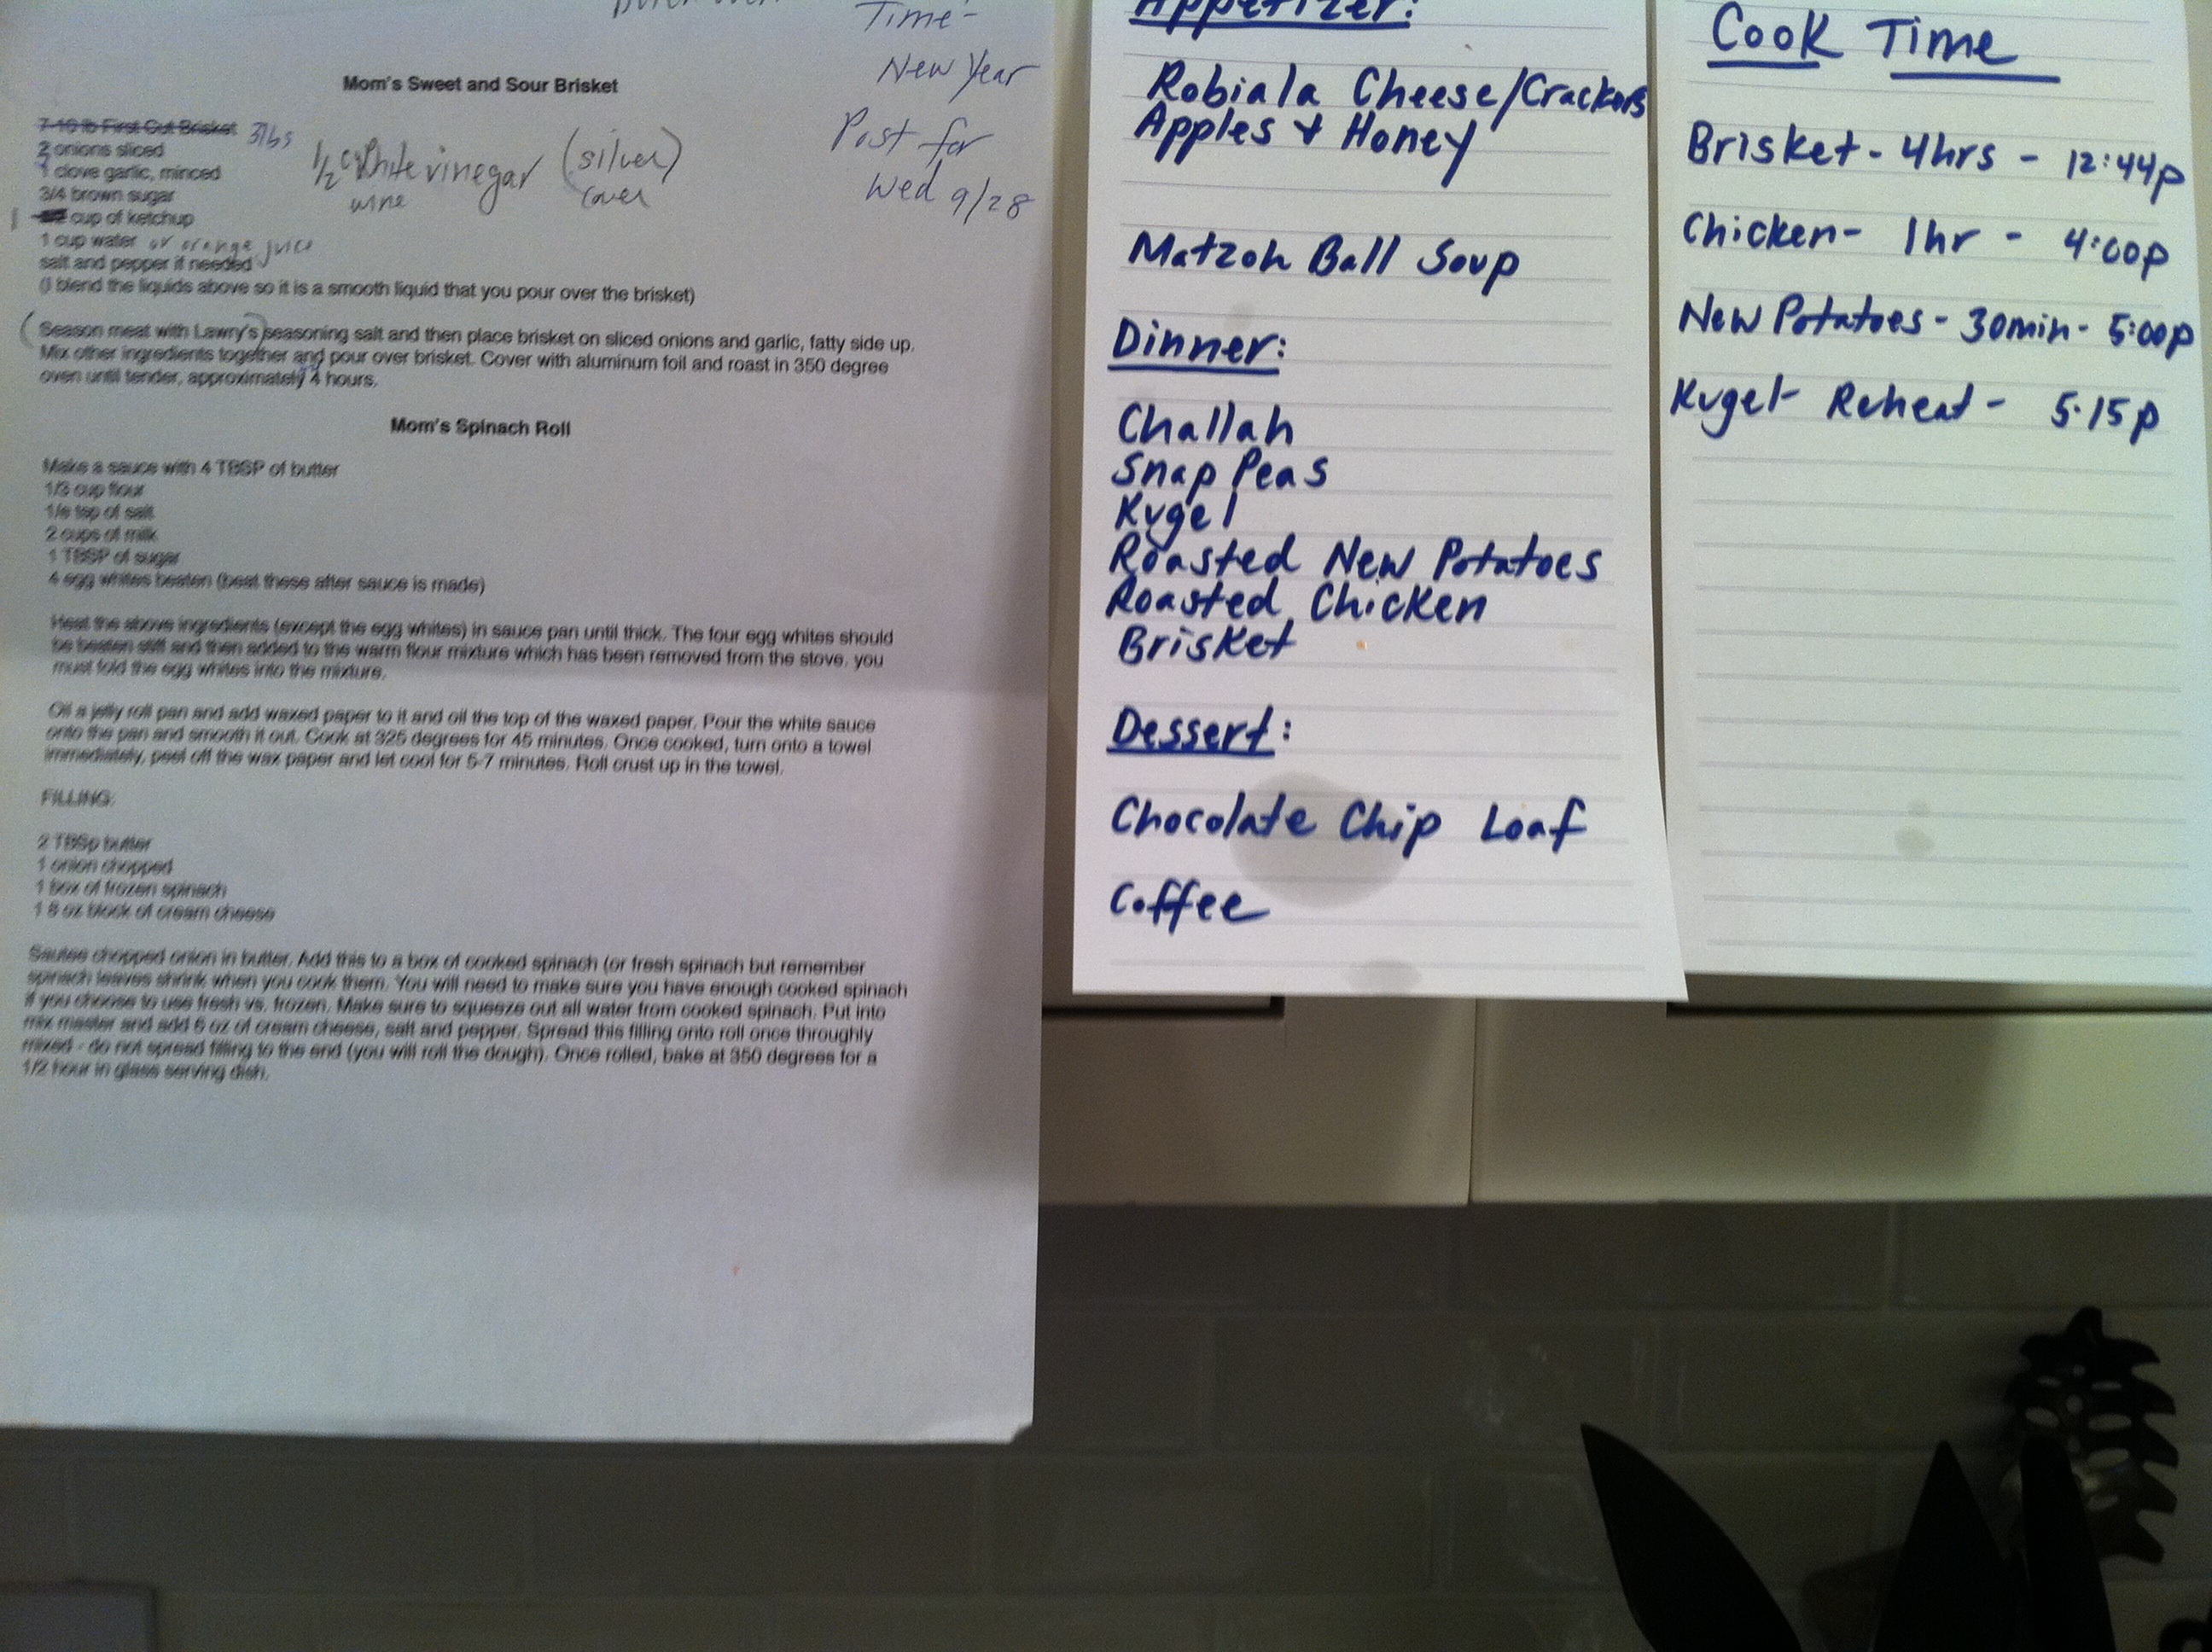 Time-
New Year
Post for
Wed 9/28
Mom's Sweet and Sour Brisket
7-10 lb First Cut Brisket 3lbs
2 onions sliced
1 clove garlic, minced
3/4 brown sugar
1 cup of ketchup
1 cup water or orange juice
salt and pepper if needed
(I blend the liquids above so it is a smooth liquid that you pour over the brisket)
1/2 c white vinegar (silver)
wine cover
(Season meat with Lawry's) seasoning salt and then place brisket on sliced onions and garlic, fatty side up.
Mix other ingredients together and pour over brisket. Cover with aluminum foil and roast in 350 degree
oven until tender, approximately 4 hours.
Mom's Spinach Roll
Make a sauce with 4 TBSP of butter
1/3 cup flour
tsp of salt
2 cups of milk
1 TBSP of sugar
4 egg whites beaten (beat these after sauce is made)
Heat the above ingredients (except the egg whites) in sauce pan until thick. The four egg whites should
be beaten stiff and then added to the warm flour mixture which has been removed from the stove. you
must fold the egg whites into the mixture.
Oil a jelly roll pan and add waxed paper to it and oil the top of the waxed paper. Pour the white sauce
onto the pan and smooth it out. Cook at 325 degrees for 45 minutes. Once cooked, turn onto a towel
immediately, peel off the wax paper and let cool for 5-7 minutes. Roll crust up in the towel.
FILLING:
2 TBSp butter
1 onion chopped
1 box of frozen spinach
1 8 oz block of cream cheese
Sautee chopped onion in butter. Add this to a box of cooked spinach (or fresh spinach but remember
spinach leaves shrink when you cook them. You will need to make sure you have enough cooked spinach
if you choose to use fresh vs. frozen. Make sure to squeeze out all water from cooked spinach. Put into
mix master and add 6 oz of cream cheese, salt and pepper. Spread this filling onto roll once throughly
mixed - do not spread filling to the end (you will roll the dough). Once rolled, bake at 350 degrees for a
1/2 hour in glass serving dish.
Appetizer:
Robiala Cheese/Crackers
Apples + Honey
Matzoh Ball Soup
Dinner:
Challah
Snap Peas
Kugel
Roasted New Potatoes
Roasted Chicken
Brisket
Dessert:
Chocolate Chip Loaf
Coffee
Cook Time
Brisket - 4hrs - 12:44p
Chicken - 1hr - 4:00p
New Potatoes - 30min - 5:00p
Kugel - Reheat - 5:15p